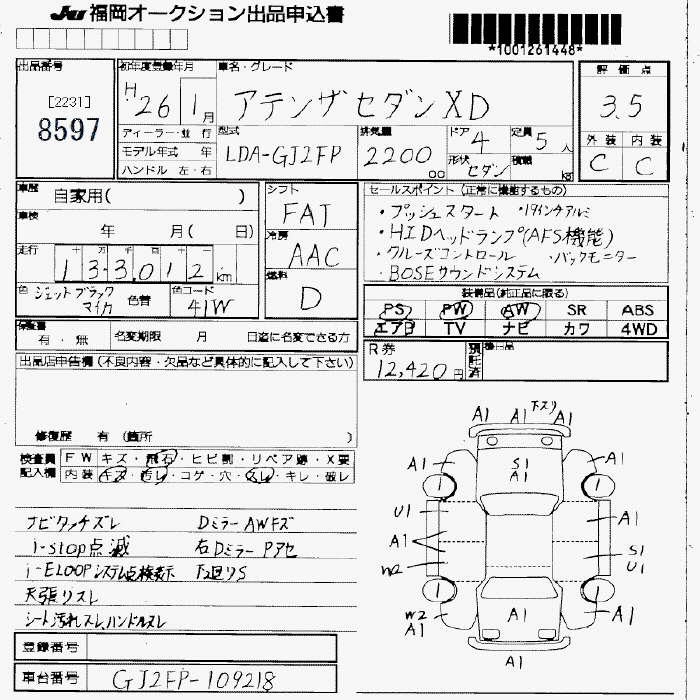 JU 福岡オークション出品申込書
*1001261448*
出品番号
[2231]
8597
初年度登録年月
H 26 1月
ディーラー・並行
モデル年式 年
ハンドル 左・右
車名・グレード
アテンザセダンXD
型式
LDA-GJ2FP
排気量
2200 cc
ドア 4
定員 5人
形状 セダン
積載 kg
評価点
3.5
外装 内装
C C
車歴 自家用( )
車検 年 月( 日)
走行 十万千百十一
133012 km
色 ジェットブラックマイカ
色替
色コード 41W
シフト
FAT
冷房
AAC
燃料
D
セールスポイント(正常に機能するもの)
・プッシュスタート ・19インチアルミ
・HIDヘッドランプ(AFS機能)
・クルーズコントロール ・バックモニター
・BOSEサウンドシステム
装備品(純正品に限る)
PS PW AW SR ABS
エアB TV ナビ カワ 4WD
保証書 有・無
名変期限 月 日迄に名変できる方
R券
12,420円
預託済
後日品
出品店申告欄(不良内容・欠品など具体的に記入して下さい)
修復歴 有 (箇所 )
検査員記入欄
FW キズ・飛石・ヒビ割・リペア跡・X要
内装 キズ・汚レ・コゲ・穴・スレ・キレ・破レ
ナビタッチズレ DミラーAWキズ
i-stop点滅 右DミラーPアセ
i-ELOOPシステム点検表示 下廻りS
天張リスレ
シート汚れスレ、ハンドルスレ
登録番号
車台番号 GJ2FP-109218
A1 A1 下スリ A1
A1 S1 A1 A1
1 1
U1 A1
A1 S1 U1
W2
1 1
W2 A1 A1 A1
A1